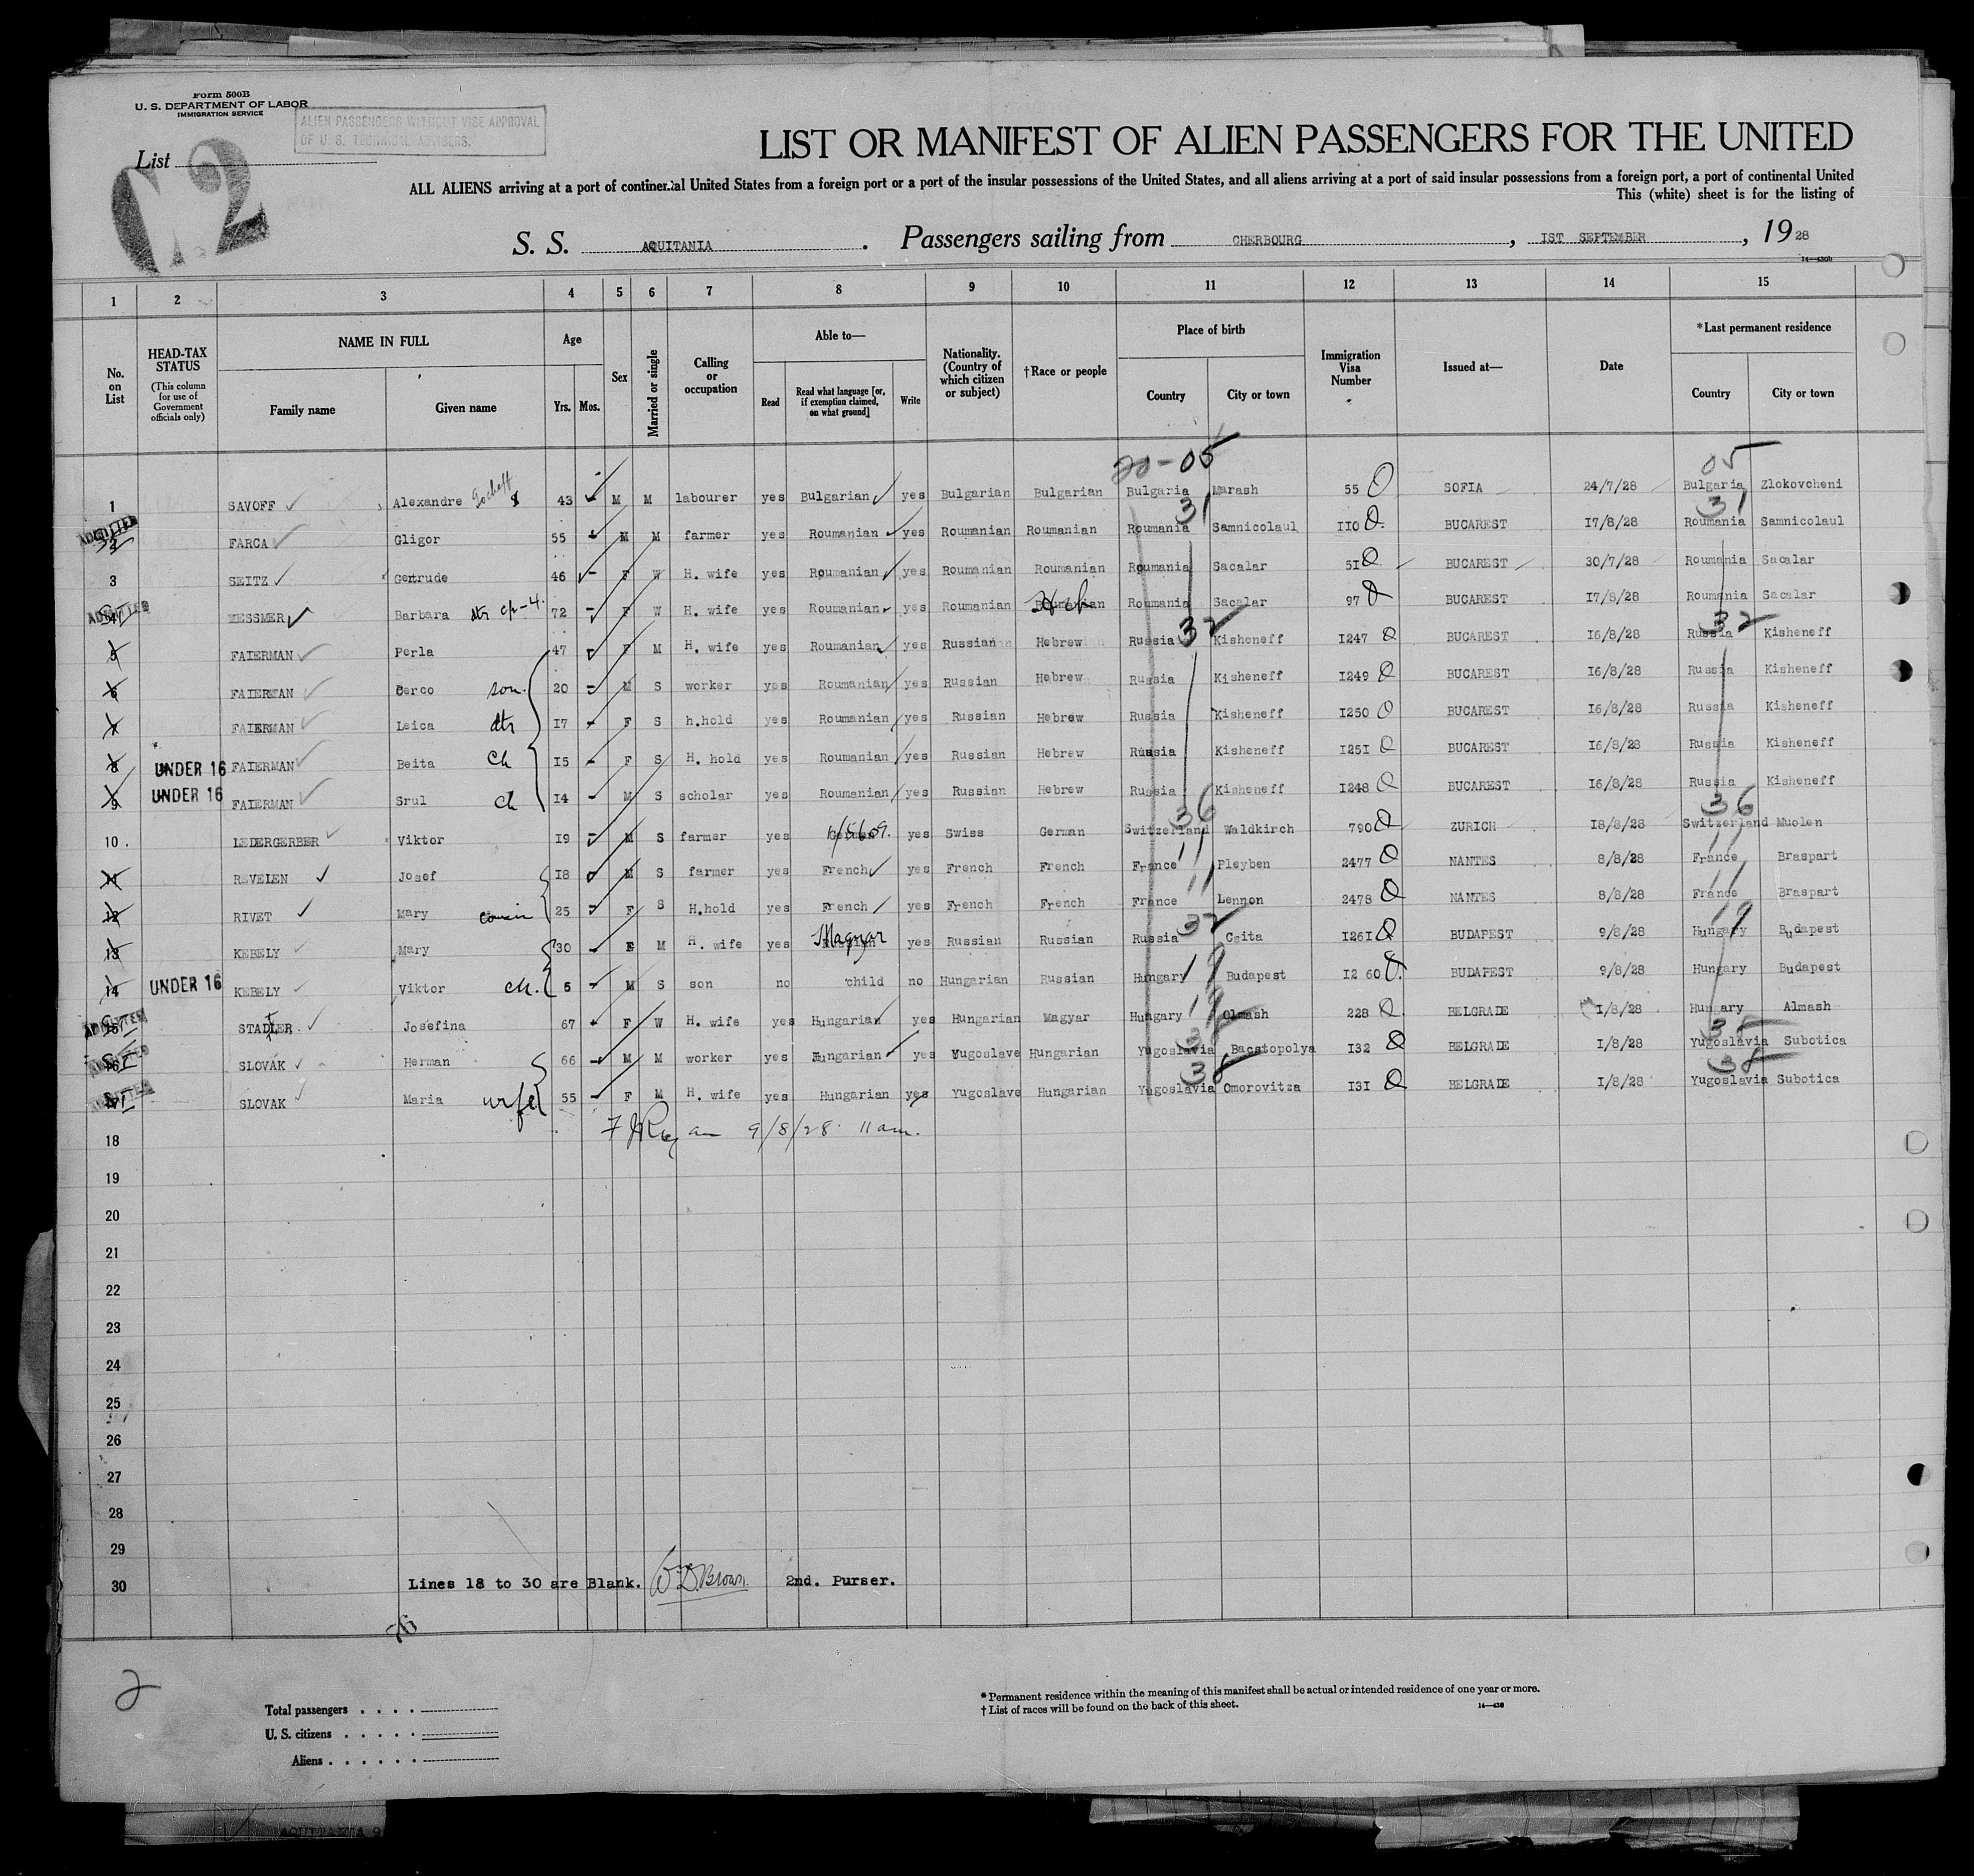 Form 500B
U. S. DEPARTMENT OF LABOR
IMMIGRATION SERVICE
ALIEN PASSENGERS WITHOUT VISE APPROVAL
OF U. S. TECHNICAL ADVISERS.
List
2
LIST OR MANIFEST OF ALIEN PASSENGERS FOR THE UNITED
ALL ALIENS arriving at a port of continental United States from a foreign port or a port of the insular possessions of the United States, and all aliens arriving at a port of said insular possessions from a foreign port, a port of continental United
This (white) sheet is for the listing of
S. S. AQUITANIA . Passengers sailing from CHERBOURG , 1ST SEPTEMBER , 19 28
14—430b
1 2 3 4 5 6 7 8 9 10 11 12 13 14 15
No. on List
HEAD-TAX STATUS (This column for use of Government officials only)
NAME IN FULL
Family name Given name
Age
Yrs. Mos.
Sex
Married or single
Calling or occupation
Able to—
Read Read what language [or, if exemption claimed, on what ground] Write
Nationality. (Country of which citizen or subject)
†Race or people
Place of birth
Country City or town
Immigration Visa Number
Issued at—
Date
*Last permanent residence
Country City or town
20-05 05
1 SAVOFF Alexandre Gocheff 43 M M labourer yes Bulgarian yes Bulgarian Bulgarian Bulgaria Marash 55 SOFIA 24/7/28 Bulgaria Zlokovcheni
31 31
ADMITTED 2 FARCA Gligor 55 M M farmer yes Roumanian yes Roumanian Roumanian Roumania Samnicolaul 110 BUCAREST 17/8/28 Roumania Samnicolaul
3 SEITZ Gertrude 46 F W H. wife yes Roumanian yes Roumanian Roumanian Roumania Sacalar 51 BUCAREST 30/7/28 Roumania Sacalar
ADMITTED 4 MESSMER Barbara 72 F W H. wife yes Roumanian yes Roumanian Roumanian Roumania Sacalar 97 BUCAREST 17/8/28 Roumania Sacalar
32 32
5 FAIERMAN Perla 47 F M H. wife yes Roumanian yes Russian Hebrew Russia Kisheneff 1247 BUCAREST 16/8/28 Russia Kisheneff
6 FAIERMAN Berco son. 20 M S worker yes Roumanian yes Russian Hebrew Russia Kisheneff 1249 BUCAREST 16/8/28 Russia Kisheneff
7 FAIERMAN Leica dtr 17 F S h.hold yes Roumanian yes Russian Hebrew Russia Kisheneff 1250 BUCAREST 16/8/28 Russia Kisheneff
8 UNDER 16 FAIERMAN Beita ch 15 F S H. hold yes Roumanian yes Russian Hebrew Russia Kisheneff 1251 BUCAREST 16/8/28 Russia Kisheneff
9 UNDER 16 FAIERMAN Srul ch 14 M S scholar yes Roumanian yes Russian Hebrew Russia Kisheneff 1248 BUCAREST 16/8/28 Russia Kisheneff
36 36
10 LEDERGERBER Viktor 19 M S farmer yes German yes Swiss German Switzerland Waldkirch 790 ZURICH 18/8/28 Switzerland Muolen
11 11
11 REVELEN Josef 18 M S farmer yes French yes French French France Pleyben 2477 NANTES 8/8/28 France Braspart
11 11
12 RIVET Mary cousin 25 F S H.hold yes French yes French French France Lennon 2478 NANTES 8/8/28 France Braspart
32 19
13 KEBELY Mary 30 F M H. wife yes Magyar yes Russian Russian Russia Ceita 1261 BUDAPEST 9/8/28 Hungary Budapest
19
14 UNDER 16 KEBELY Viktor ch. 5 M S son no child no Hungarian Russian Hungary Budapest 1260 BUDAPEST 9/8/28 Hungary Budapest
19
ADMITTED 15 STADLER Josefina 67 F W H. wife yes Hungarian yes Hungarian Magyar Hungary Olmash 228 BELGRADE 1/8/28 Hungary Almash
35
ADMITTED 16 SLOVAK Herman 66 M M worker yes Hungarian yes Yugoslave Hungarian Yugoslavia Bacstopolya 132 BELGRADE 1/8/28 Yugoslavia Subotica
38
ADMITTED 17 SLOVAK Maria wife 55 F M H. wife yes Hungarian yes Yugoslave Hungarian Yugoslavia Omorovitza 131 BELGRADE 1/8/28 Yugoslavia Subotica
18 9/8/28 11 am.
19
20
21
22
23
24
25
26
27
28
29
30 Lines 18 to 30 are Blank. Wm D. Brown. 2nd. Purser.
76
2
Total passengers
U. S. citizens
Aliens
* Permanent residence within the meaning of this manifest shall be actual or intended residence of one year or more.
† List of races will be found on the back of this sheet.
14—430